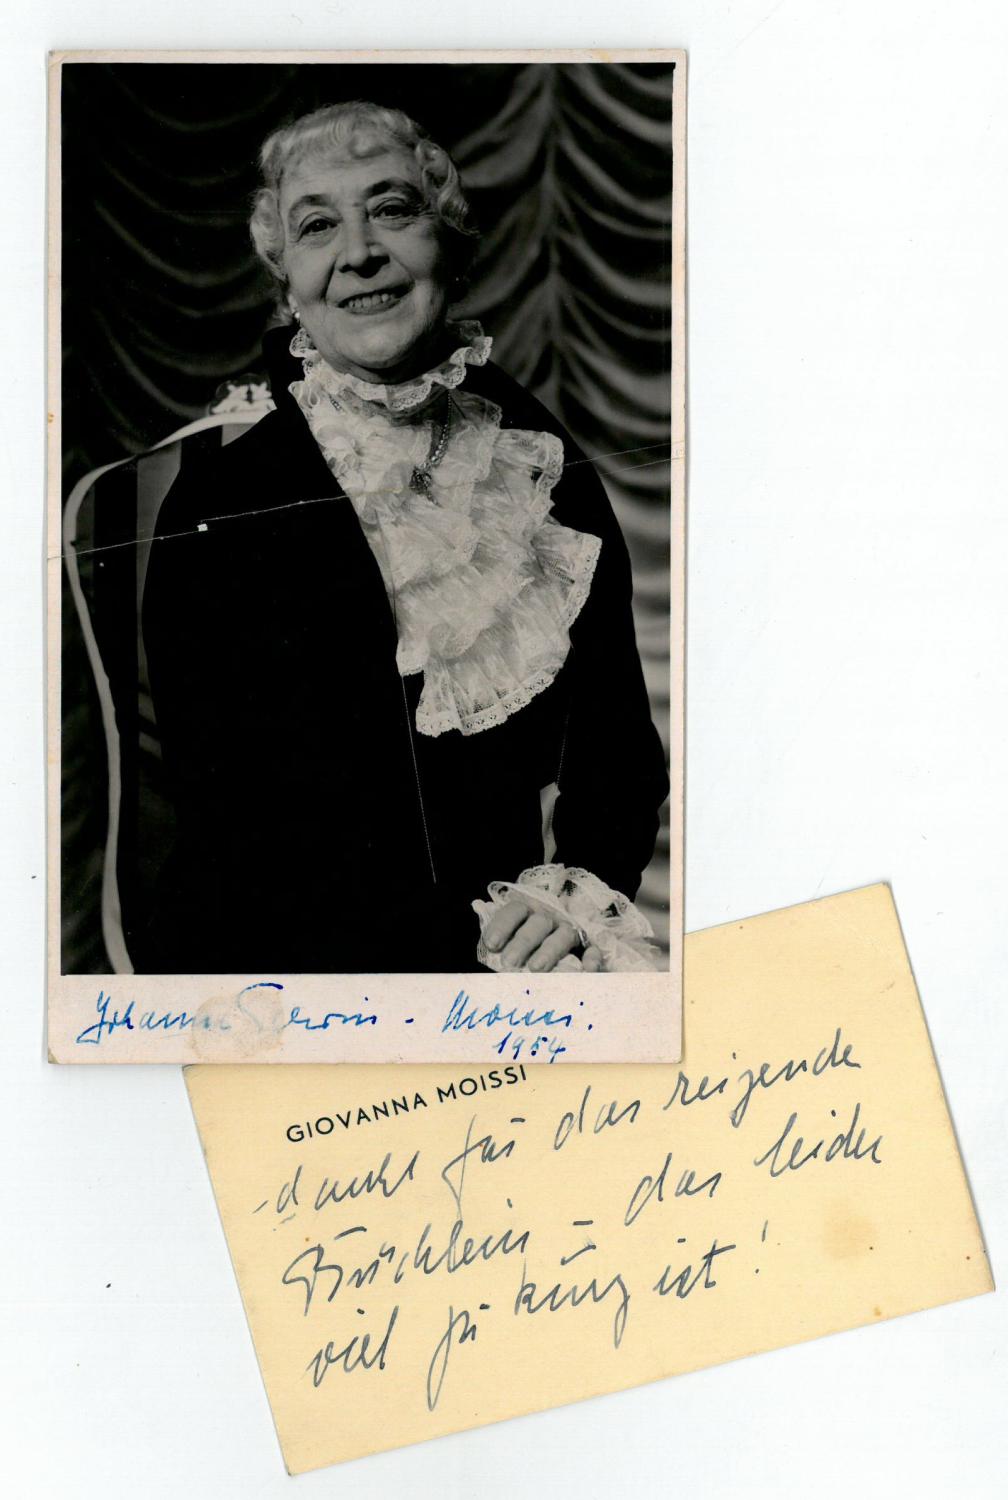 Johanna Terwin - Moissi.
1954
GIOVANNA MOISSI
dankt für das reizende
Büchlein - das leider
viel zu kurz ist!